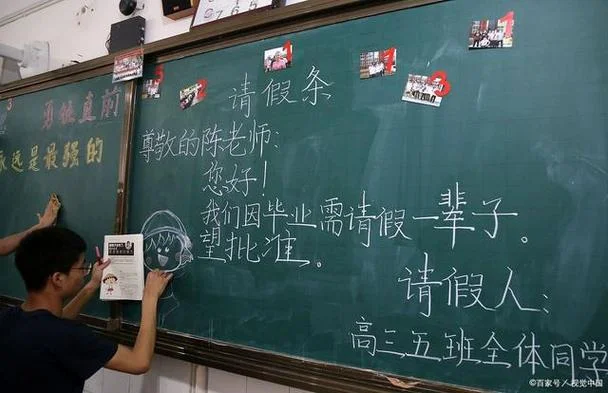 勇往直前
永远是最强的
请假条
尊敬的陈老师：
您好！
我们因毕业需请假一辈子。
望批准。
请假人：
高三五班全体同学
©百家号／视觉中国